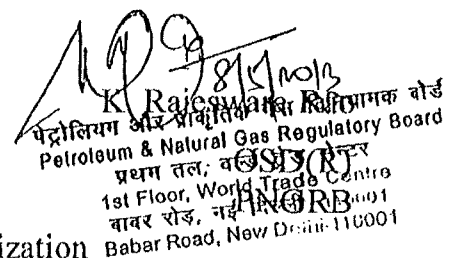 8/5/2013
K. Rajeswara Rao
पेट्रोलियम और प्राकृतिक गैस विनियामक बोर्ड
Petroleum & Natural Gas Regulatory Board
प्रथम तल, वर्ल्ड ट्रेड सेन्टर
OSD(R)
1st Floor, World Trade Centre
PNGRB
बाबर रोड, नई
Babar Road, New Delhi-110001
ization